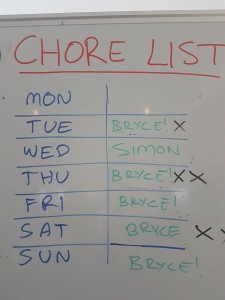 CHORE LIST
MON
TUE BRYCE! X
WED SIMON
THU BRYCE! X X
FRI BRYCE!
SAT BRYCE X X
SUN BRYCE!